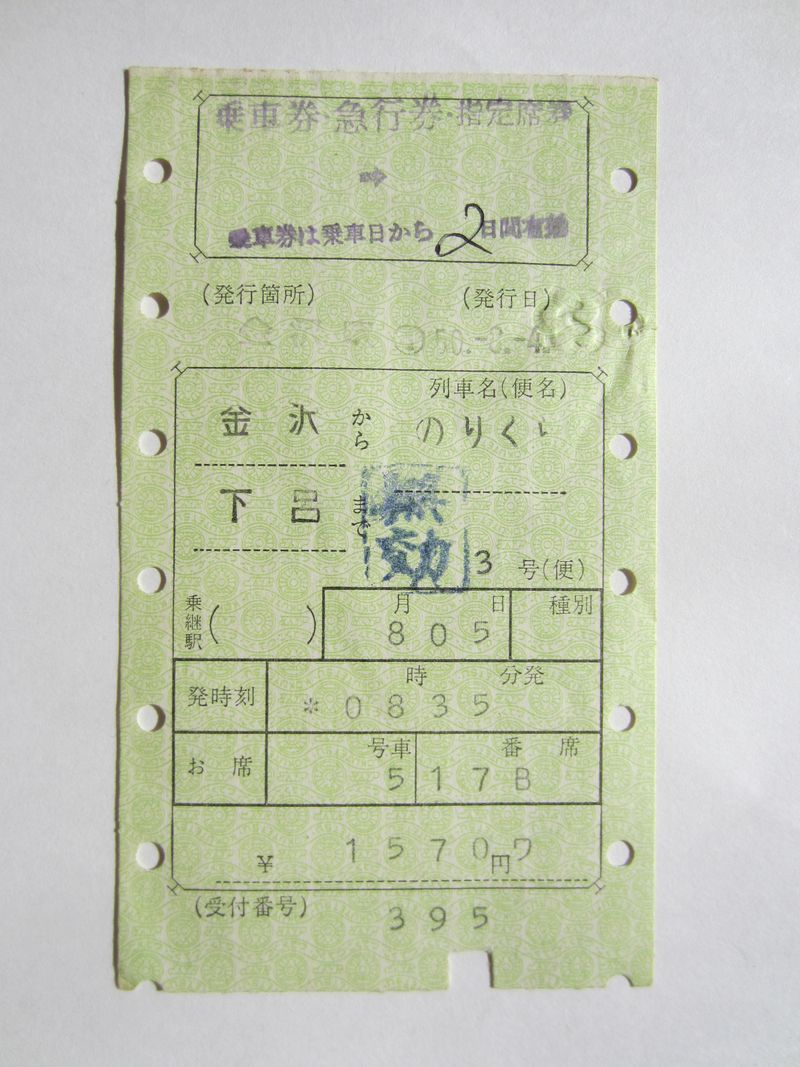 乗車券・急行券・指定席券
➡
乗車券は乗車日から2日間有効
(発行箇所) (発行日)
50.-8.-4
列車名(便名)
金沢から のりくら
下呂まで
無効
3 号(便)
乗継駅( ) 月 日 種別
805
時 分発
発時刻 *0835
号車 番 席
お席 5 17B
¥ 1570円ワ
(受付番号) 395